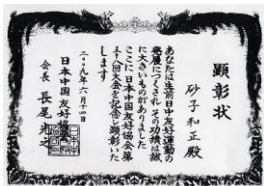 顕彰状
砂子和正殿
あなたは生前日中友好運動の
発展につくされその功績は誠
に大きいものがありました
ここに日本中国友好協会第
五十八回大会を記念し顕彰いた
します
二〇〇九年六月十四日
日本中国友好協会
会長 長尾光之